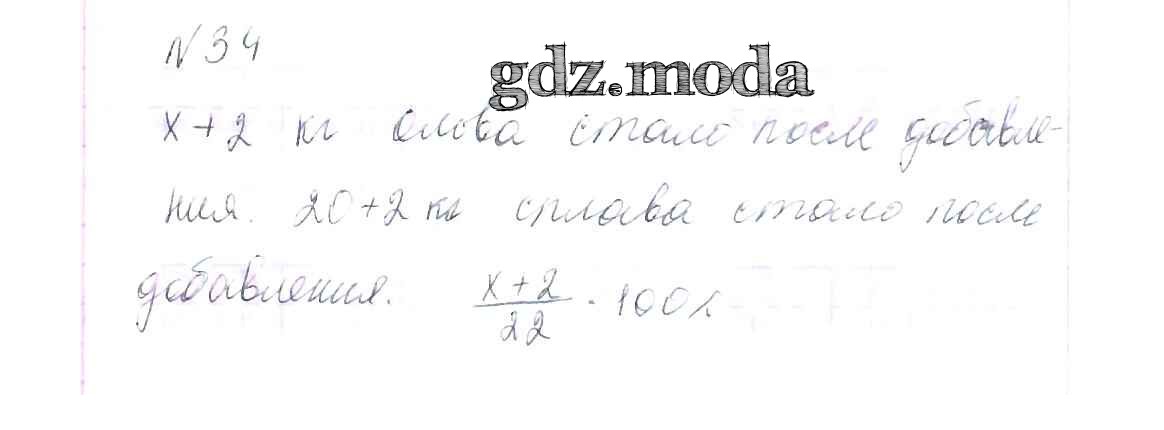 N 34
gdz.moda
x + 2 кг олова стало после добавле-
ния. 20 + 2 кг сплава стало после
добавления. \frac{x+2}{22} · 100%